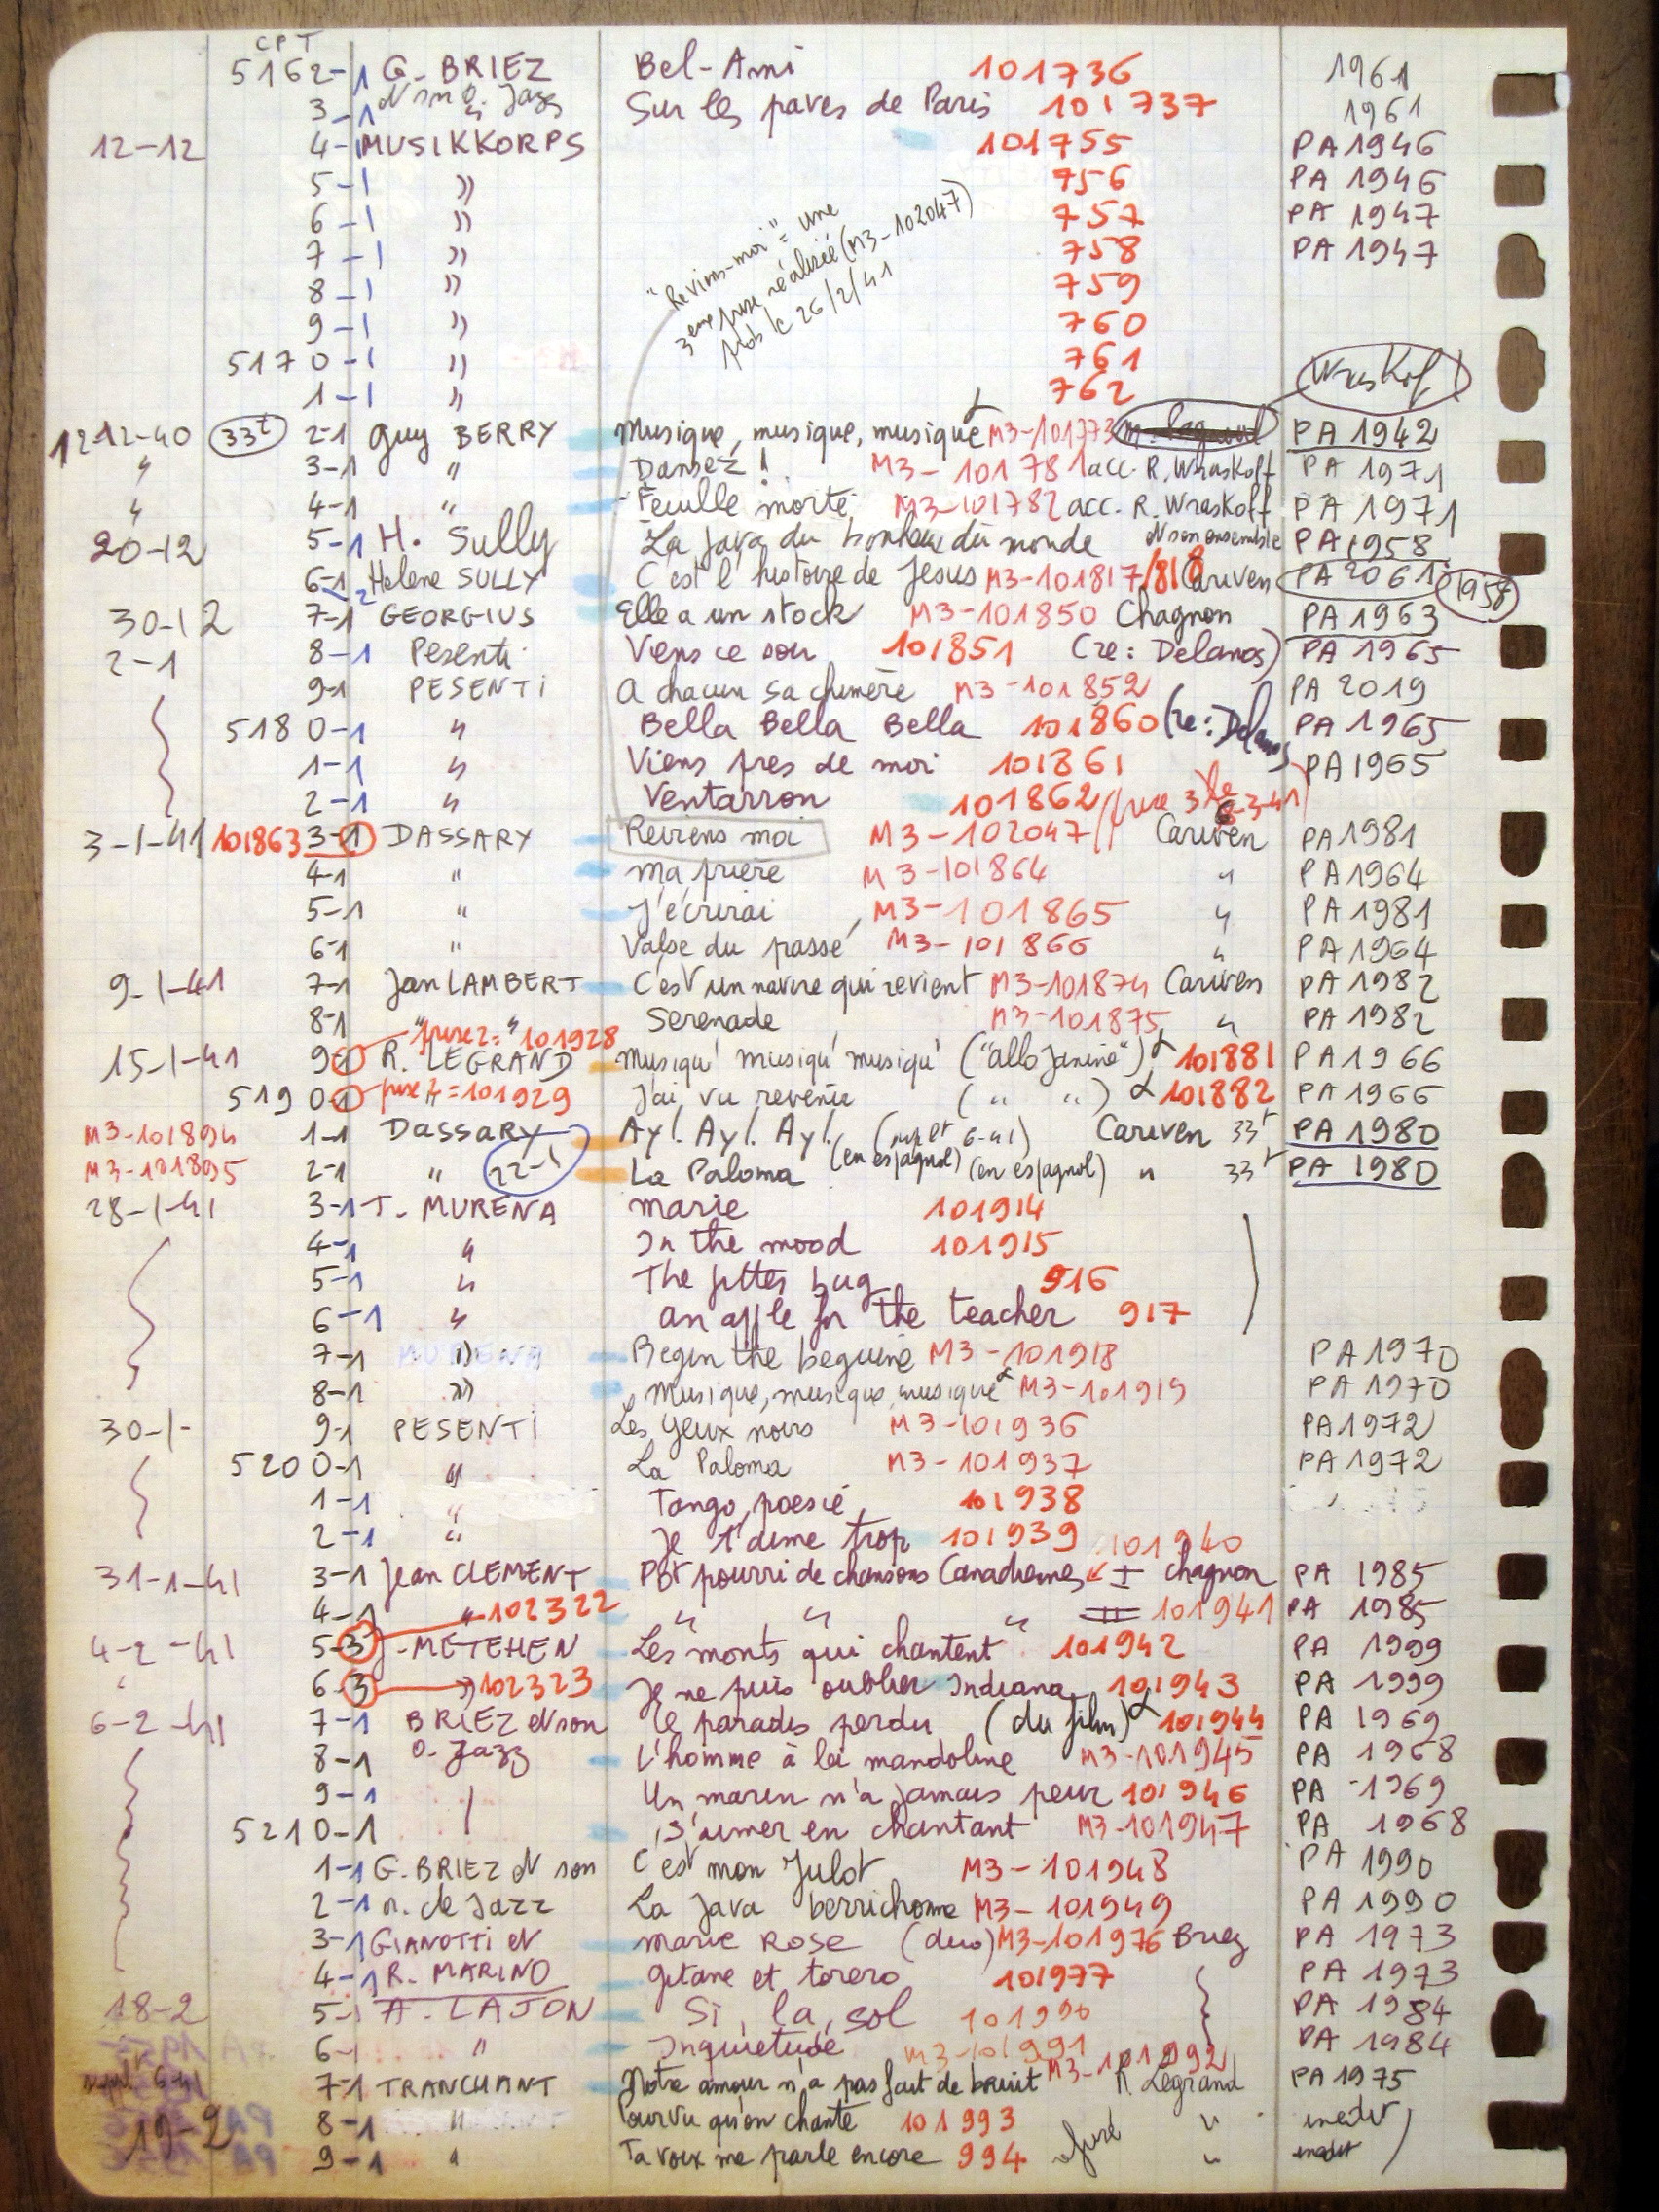 CPT
5162-1 G. BRIEZ Bel-Ami 101736 1961
3-1 et son o. Jazz Sur les paves de Paris 101737 1961
12-12 4-1 MUSIKKORPS 101755 PA 1946
5-1 " 756 PA 1946
6-1 " 757 PA 1947
7-1 " 758 PA 1947
8-1 " 759
9-1 " 760
5170-1 " 761
1-1 " 762
"Reviens-moi" = une
3eme prise réalisée (M3-102047)
le 26/2/41
Wraskof
12-12-40 33t 2-1 Guy BERRY Musique, musique, musique M3-101773 PA 1942
" 3-1 " Dansez ! M3-101781 acc. R. Wraskoff PA 1971
" 4-1 " Feuille morte M3-101782 acc. R. Wraskoff PA 1971
20-12 5-1 H. Sully La java du bonheur du monde et son ensemble PA 1958
6-1 2 Helene SULLY C'est l'histoire de Jesus M3-101817/818 Cariven PA 2061 1958
30-12 7-1 GEORGIUS Elle a un stock M3-101850 Chagnon PA 1963
2-1 8-1 Pesenti Viens ce soir 101851 (re: Delanos) PA 1965
9-1 PESENTI A chacun sa chimère M3-101852 PA 2019
5180-1 " Bella Bella Bella 101860 (re: Delanos PA 1965
1-1 " Viens pres de moi 101861 PA 1965
2-1 " Ventarron 101862 (prise 3 le 6-3-41)
3-1-41 101863 3-1 DASSARY Reviens moi M3-102047 Cariven PA 1981
4-1 " Ma prière M3-101864 " PA 1964
5-1 " J'écrirai M3-101865 " PA 1981
6-1 " Valse du passé M3-101866 " PA 1964
9-1-41 7-1 Jan LAMBERT C'est un navire qui revient M3-101874 Cariven PA 1982
8-1 " Serenade M3-101875 " PA 1982
prise 2 = 101928
15-1-41 9-1 R. LEGRAND Musiqu' musiqu' musiqu' ("allo Janine") 101881 PA 1966
5190-1 prise 2 = 101929 J'ai vu revenir (" ") 101882 PA 1966
M3-101894 1-1 DASSARY Ay! Ay! Ay! (en espagnol) 6-41) Cariven 33t PA 1980
M3-101895 2-1 " 22-1 La Paloma (en espagnol) " 33t PA 1980
28-1-41 3-1 T. MURENA Marie 101914
4-1 " In the mood 101915
5-1 " The jitter bug 916
6-1 " An apple for the teacher 917
7-1 " Begin the beguine M3-101918 PA 1970
8-1 " Musique, musique, musique M3-101919 PA 1970
30-1- 9-1 PESENTI Les yeux noirs M3-101936 PA 1972
5200-1 " La Paloma M3-101937 PA 1972
1-1 " Tango poesie 101938
2-1 " Je t'aime trop 101939 101940
31-1-41 3-1 Jean CLEMENT Pot pourri de chansons Canadiennes I Chagnon PA 1985
4-1 " 102322 " " " II 101941 PA 1985
4-2-41 5-3 J. METEHEN Les monts qui chantent 101942 PA 1999
" 6-3 " 102323 Je ne puis oublier Indiana 101943 PA 1999
6-2-41 7-1 BRIEZ et son Le paradis perdu (du film) 101944 PA 1969
8-1 o. Jazz L'homme à la mandoline M3-101945 PA 1968
9-1 Un marin n'a jamais peur 101946 PA 1969
5210-1 S'aimer en chantant M3-101947 PA 1968
1-1 G. BRIEZ et son C'est mon Julot M3-101948 PA 1990
2-1 o. de Jazz La Java berrichonne M3-101949 PA 1990
3-1 GIANOTTI et Marie Rose (duo) M3-101976 Briez PA 1973
4-1 R. MARINO Gitane et torero 101977 PA 1973
18-2 5-1 A. LAJON Si, la, sol 101990 PA 1984
6-1 " Inquietude M3-101991 PA 1984
7-1 TRANCHANT Notre amour n'a pas fait de bruit M3-101992 R. Legrand PA 1975
19-2 8-1 " Pourvu qu'on chante 101993 " inedit
9-1 " Ta voix me parle encore 994 " inedit